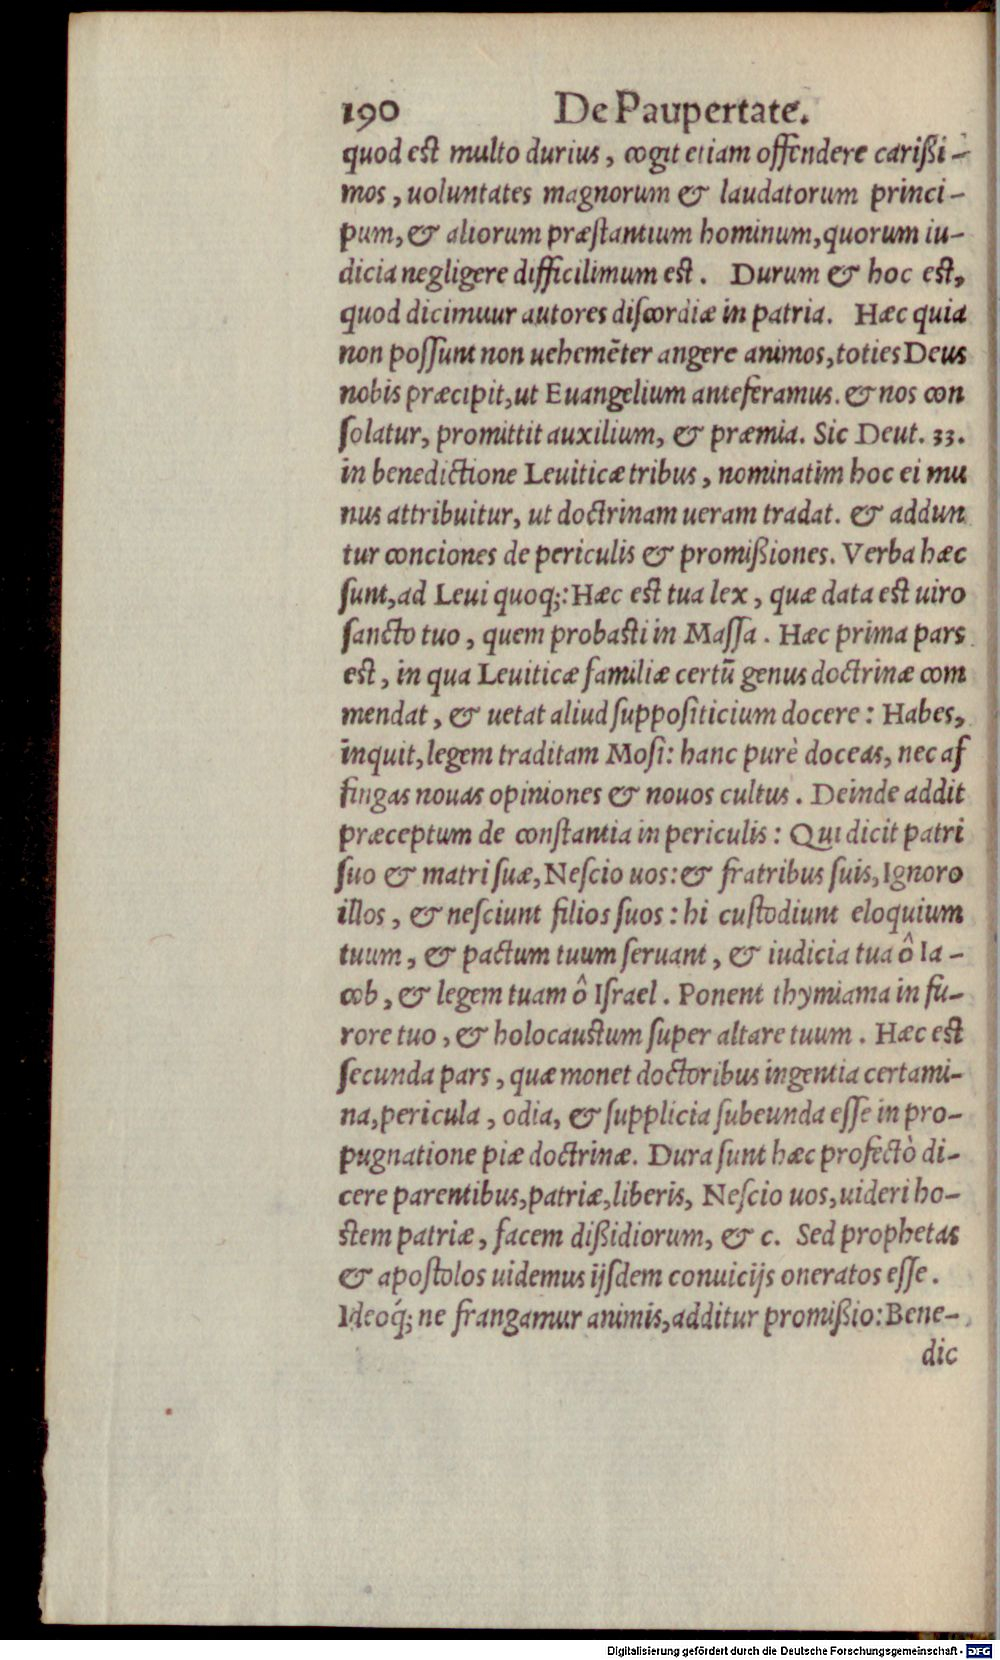 190 De Paupertate.
quod est multo durius, cogit etiam offendere carißi-
mos, uoluntates magnorum & laudatorum princi-
pum, & aliorum præstantium hominum, quorum iu-
dicia negligere difficilimum est. Durum & hoc est,
quod dicimuur autores discordiæ in patria. Hæc quia
non possunt non uehemẽter angere animos, toties Deus
nobis præcipit, ut Euangelium anteferamus. & nos con
solatur, promittit auxilium, & præmia. Sic Deut. 33.
in benedictione Leuiticæ tribus, nominatim hoc ei mu
nus attribuitur, ut doctrinam ueram tradat. & addun
tur conciones de periculis & promißiones. Verba hæc
sunt, ad Leui quoq;: Hæc est tua lex, quæ data est uiro
sancto tuo, quem probasti in Massa. Hæc prima pars
est, in qua Leuiticæ familiæ certũ genus doctrinæ com
mendat, & uetat aliud suppositicium docere: Habes,
inquit, legem traditam Mosi: hanc purè doceas, nec af
fingas nouas opiniones & nouos cultus. Deinde addit
præceptum de constantia in periculis: Qui dicit patri
suo & matri suæ, Nescio uos: & fratribus suis, Ignoro
illos, & nesciunt filios suos: hi custodiunt eloquium
tuum, & pactum tuum seruant, & iudicia tua ô Ia-
cob, & legem tuam ô Israel. Ponent thymiama in fu-
rore tuo, & holocaustum super altare tuum. Hæc est
secunda pars, quæ monet doctoribus ingentia certami-
na, pericula, odia, & supplicia subeunda esse in pro-
pugnatione piæ doctrinæ. Dura sunt hæc profectò di-
cere parentibus, patriæ, liberis, Nescio uos, uideri ho-
stem patriæ, facem dißidiorum, & c. Sed prophetas
& apostolos uidemus ijsdem conuicijs oneratos esse.
Ideoq́; ne frangamur animis, additur promißio: Bene-
dic
Digitalisierung gefördert durch die Deutsche Forschungsgemeinschaft - DFG